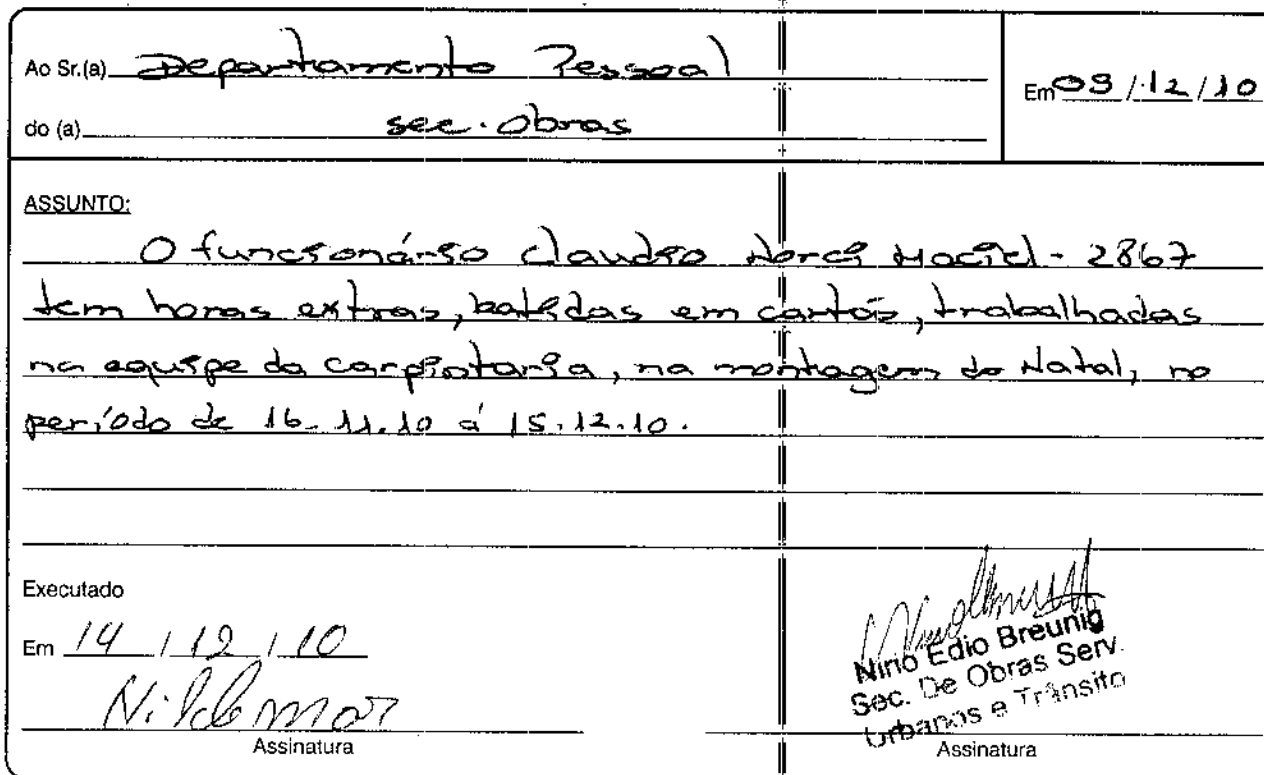 Ao Sr.(a) Departamento Pessoal
Em 09/12/10
do (a) sec. Obras
ASSUNTO:
O funcionário Claudio Norci Maciel - 2867
tem horas extras, batidas em cartão, trabalhadas
na equipe da carpintaria, na montagem do Natal, no
período de 16.11.10 á 15.12.10.
Executado
Em 14/12/10
Nildemar
Assinatura
Nirio Edio Breunig
Sec. De Obras Serv.
Urbanos e Trânsito
Assinatura